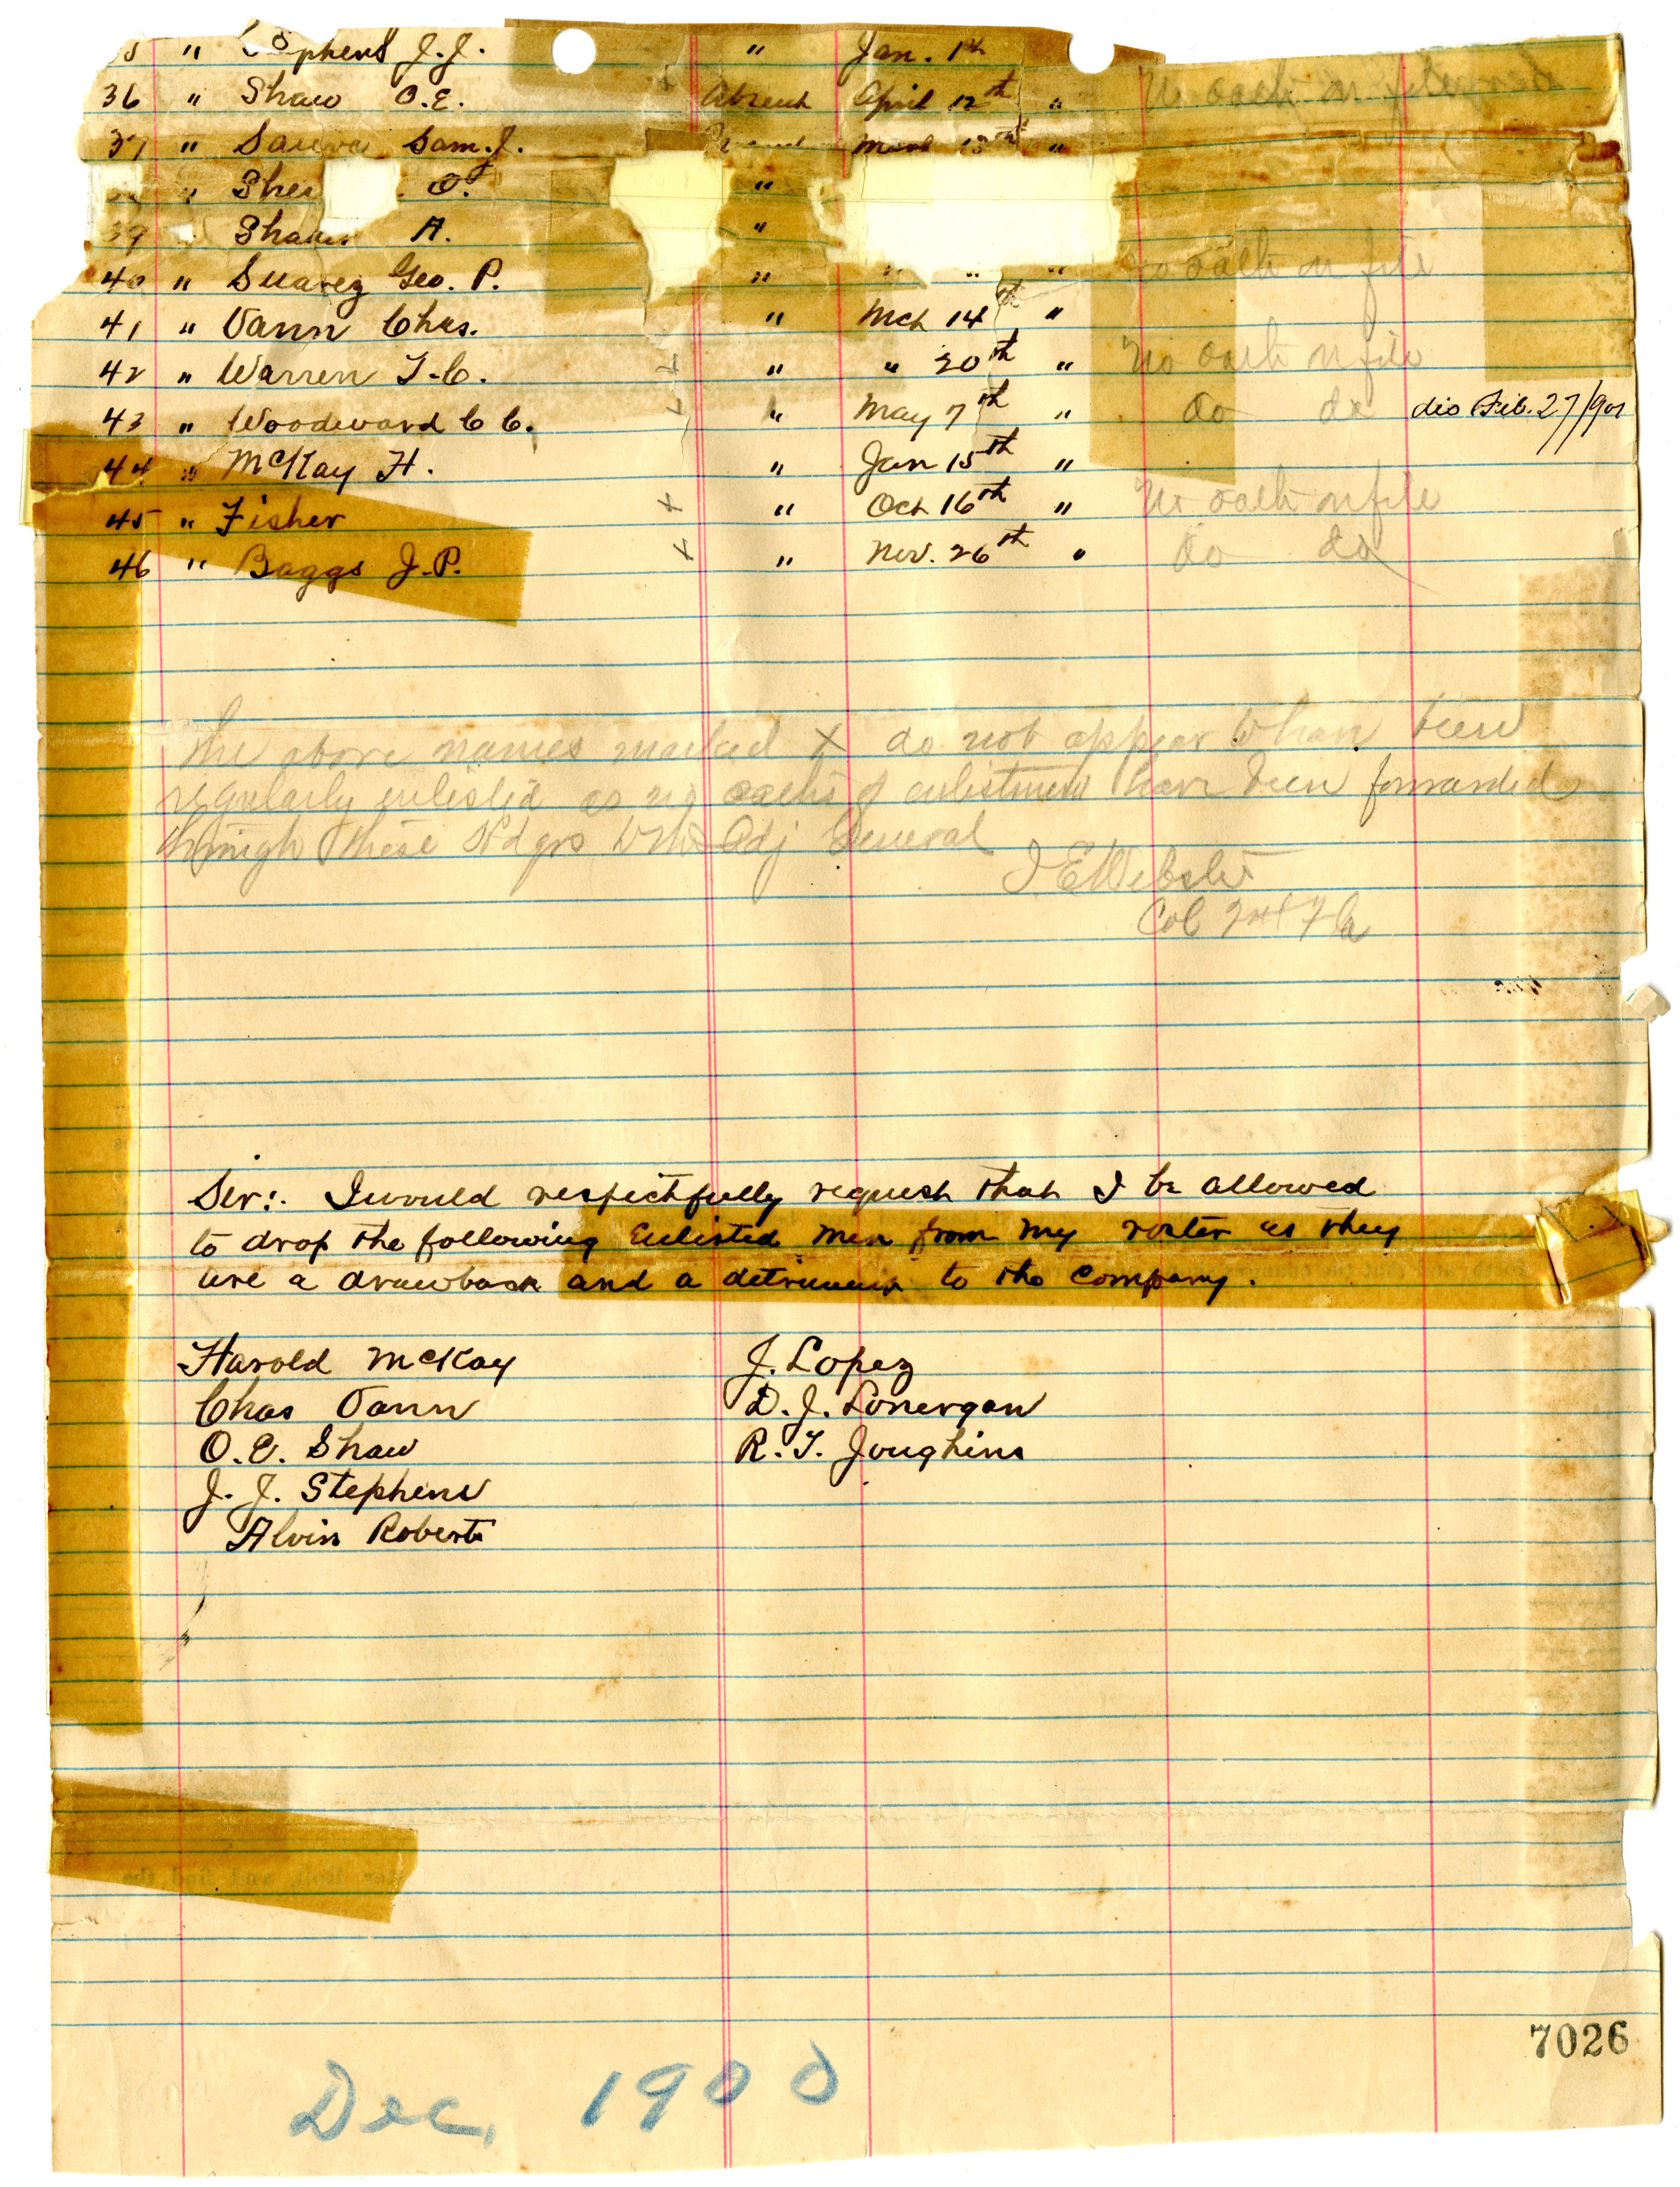 " Stephens J.J. " Jan. 1st
36 " Shaw O.E. x Absent April 12th " No oath on file
37 " Sam.J. 13th "
" O. "
39 A. "
40 " Suarez Geo. P. " " " " No oath on file
41 " Vann Chas. " Mch 14th "
42 " Warren T.C. x " " 20th " No oath on file
43 " Woodward C C. x " May 7th " do do dis Feb. 27/1901
44 " McKay H. " Jan 15th "
45 " Fisher x " Oct 16th " No oath on file
46 " Baggs J.P. x " Nov. 26th " do do
The above names marked x do not appear to have been
regularly enlisted as no oaths of enlistment have been forwarded
through these Hdqrs to the Adj General
Webster
Col 2nd Fla
Sir:. I would respectfully request that I be allowed
to drop the following Enlisted men from my roster as they
are a drawback and a detriment to the Company.
Harold McKay J. Lopez
Chas Vann D. J. Lonergan
O. E. Shaw R. T. Joughins
J. J. Stephens
Alvin Roberts
7026
Dec. 1900